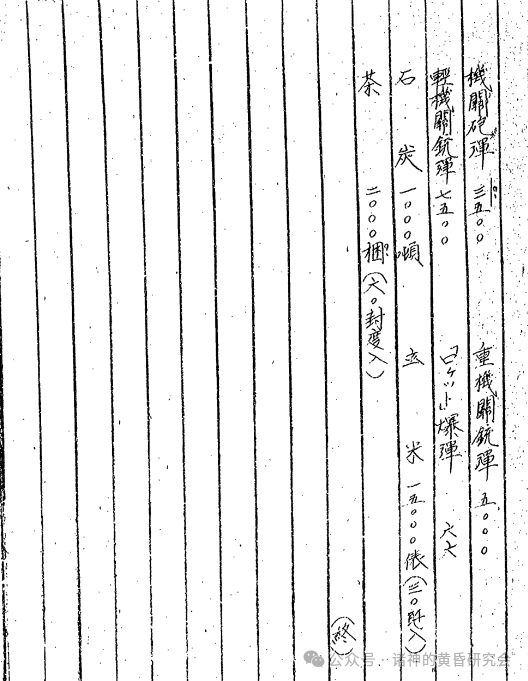 機關砲彈 三五〇〇 重機關銃彈 五〇〇〇
輕機關銃彈 七五〇〇 「ロケット」爆彈 六六
石炭 一〇〇〇噸 玄米 一五〇〇〇俵(三〇瓩入)
茶 二〇〇〇梱(六〇封度入)
(終)
公众号·诸神的黄昏研究会